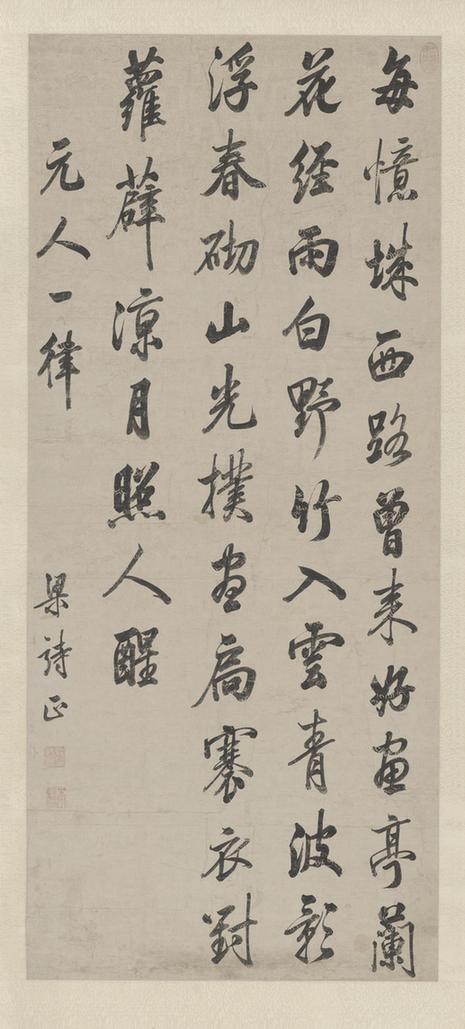 每憶城西路曾来好畫亭蘭
花經雨白野竹入雲青波影
浮春砌山光撲畫扃褰衣對
蘿薜涼月照人醒
元人一律
梁詩正